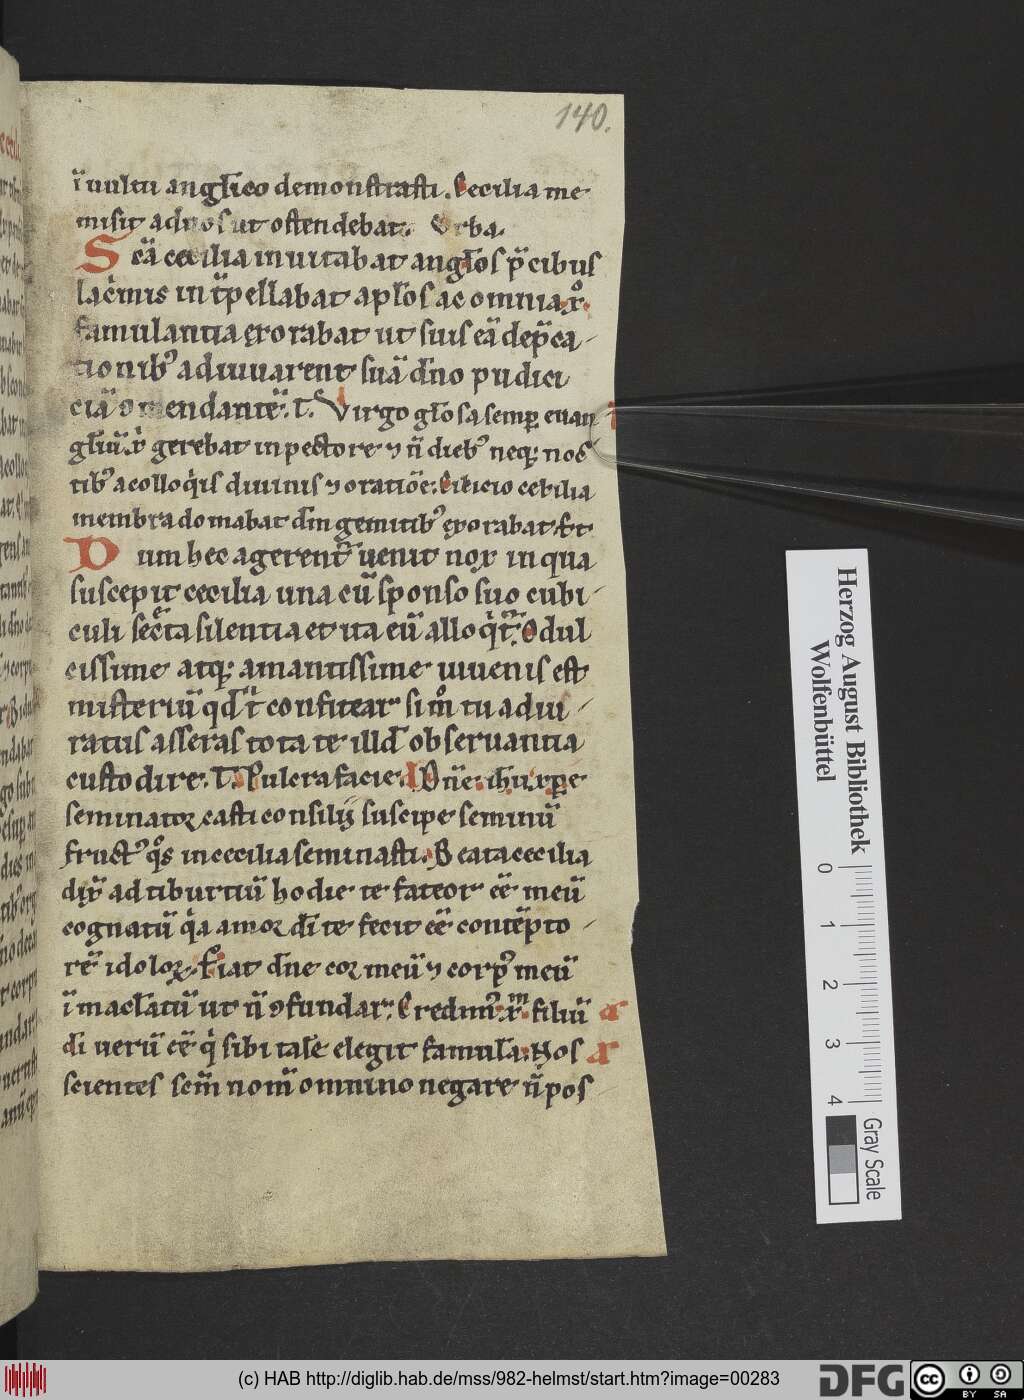 140.
ī uultu anglico demonstrasti. Cecilia me
misit ad uos ut ostendebat. Urba.
Scā cecilia inuitabat anglos p̄cibus
lac̄mis int̄pellabat aplos ac omnia xͦ
famulantia exorabat ut suis eā dep̄ca
tionibꝰ adiuuarent suā dn̄o pudici
ciā ꝯmendantē. T. Virgo glosa semꝑ euan
gliū xͥ gerebat in pectore ⁊ n̄ diebꝰ neqꝫ noc
tibꝰ a colloqͥis diuinis ⁊ oratiōe. Cilicio cecilia
membra domabat dm̄ gemitibꝰ exorabat Et
Dum hec agerent᷑ uenit nox in qua
suscepit cecilia una cū sponso suo cubi
culi secͤta silentia et ita eū alloqͥt᷑. O dul
cissime atqꝫ amantissime iuuenis est
misteriū qd̄ tͥ confitear si mͦ tu adiu
ratus asseras tota te illd̄ obseruantia
custodire. T. Pulcra facie. Dn̄e ihū xp̄e
seminator casti consilij suscipe seminū
fructꝰ qͦs in cecilia seminasti. Beata cecilia
dix̄ ad tiburtiū hodie te fateor eē meū
cognatū qͥa amor di te fecit eē contēpto
rē idoloꝝ. Fiat dn̄e cor meū ⁊ corpꝰ meū
īmaclatū ut n̄ ꝯfundar. Credimꝰ xᷠ filiū
di uerū eē qͥ sibi talē elegit famulā. Nos
scientes scm̄ nom̄ omnino negare n̄ pos
Herzog August Bibliothek
Wolfenbüttel
0 1 2 3 4
Gray Scale
(c) HAB http://diglib.hab.de/mss/982-helmst/start.htm?image=00283
DFG
cc BY SA